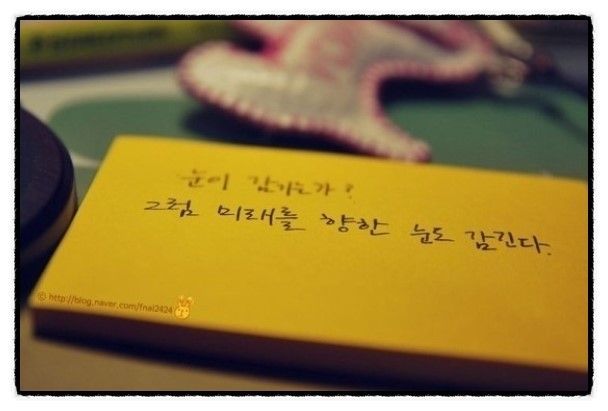 눈이 감기는가?
그럼 미래를 향한 눈도 감긴다.
© http://blog.naver.com/fnal2424